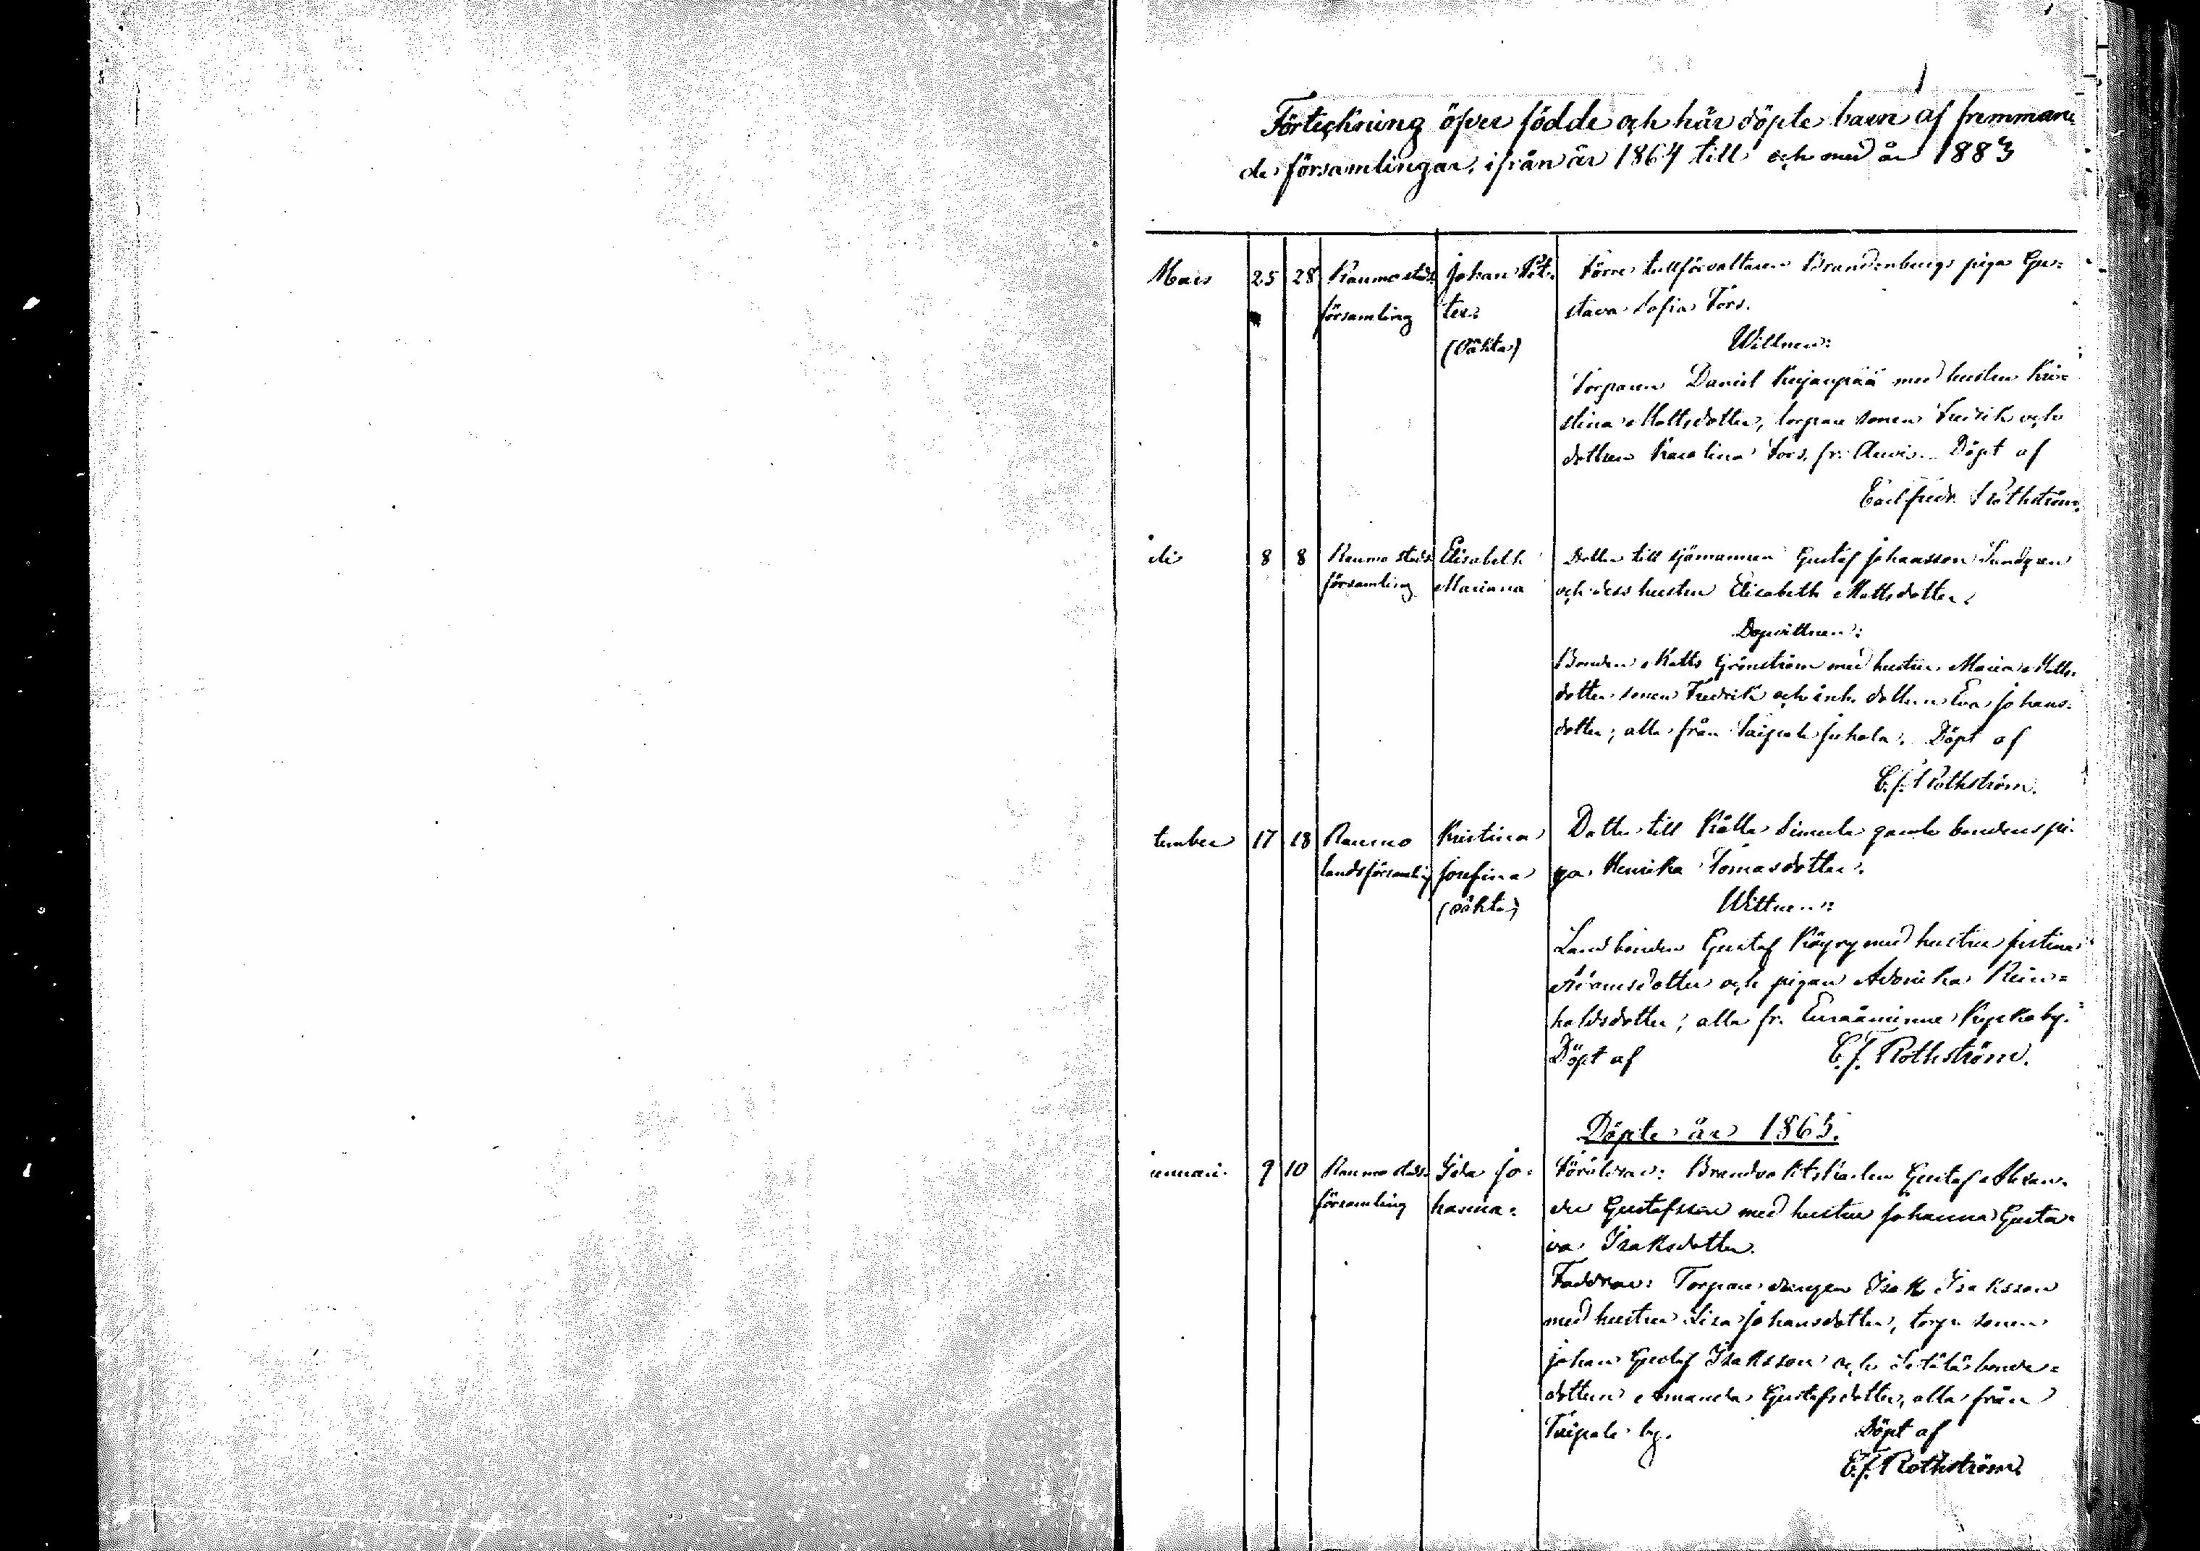 1
Förteckning öfver födde och här döpte barn af fremman
de församlingar, ifrån år 1864 till och med år 1883
Mars 25 28 Raumo stads Johan Pet. Förre tullförvaltaren Brandenburgs piga Gu=
församling ter. stava Sofia Fors.
(oäkta) Wittnen:
Torparen Daniel Knjanpää med hustru Kri=
stina Mattsdotter, torpare sonen Fredrik och
dottren Karolina Fors, fr. Anvis. Döpt af
Carl Fredr. Rothström.
li 8 8 Raumo stads Elisabeth Dotter till sjömannen Gustaf Johansson Lundgren
församling Mariana och dess hustru Elisabeth Mattsdotter.
Dopvittnen:
Bonden Matts Grönström med hustru Maria Matts=
dotter sonen Fredrik och inh. dottren Eva Johans=
dotter, alla från Taipale Juhala. Döpt af
C.f. Rothström.
tember 17 18 Raumo Kristina Dotter till Kålla Simula gamle bondens pi=
landsförsamling Josefina ga Henrika Tomasdotter.
(oäkta) Wittnen:
Landbonden Gustaf Köyry med hustru Justina
Adamsdotter och pigan Adorika Rein=
holdsdotter, alla fr. Euraåminne Kyrkoby.
Döpt af C.f. Rothström.
Döpte år 1865.
anuari 9 10 Raumo stads Ida Jo= Föräldrar: Brandvaktskarlen Gustaf Alexan=
församling hanna. der Gustafsson med hustru Johanna Gusta=
va Isaksdotter.
Faddrar: Torpare drengen Isak Isaksson
med hustru Lisa Johansdotter, torp. sonen
Johan Gustaf Isaksson och bonde=
dottren Amanda Gustafsdotter, alla från
Taipale by. Döpt af
C.f. Rothström.